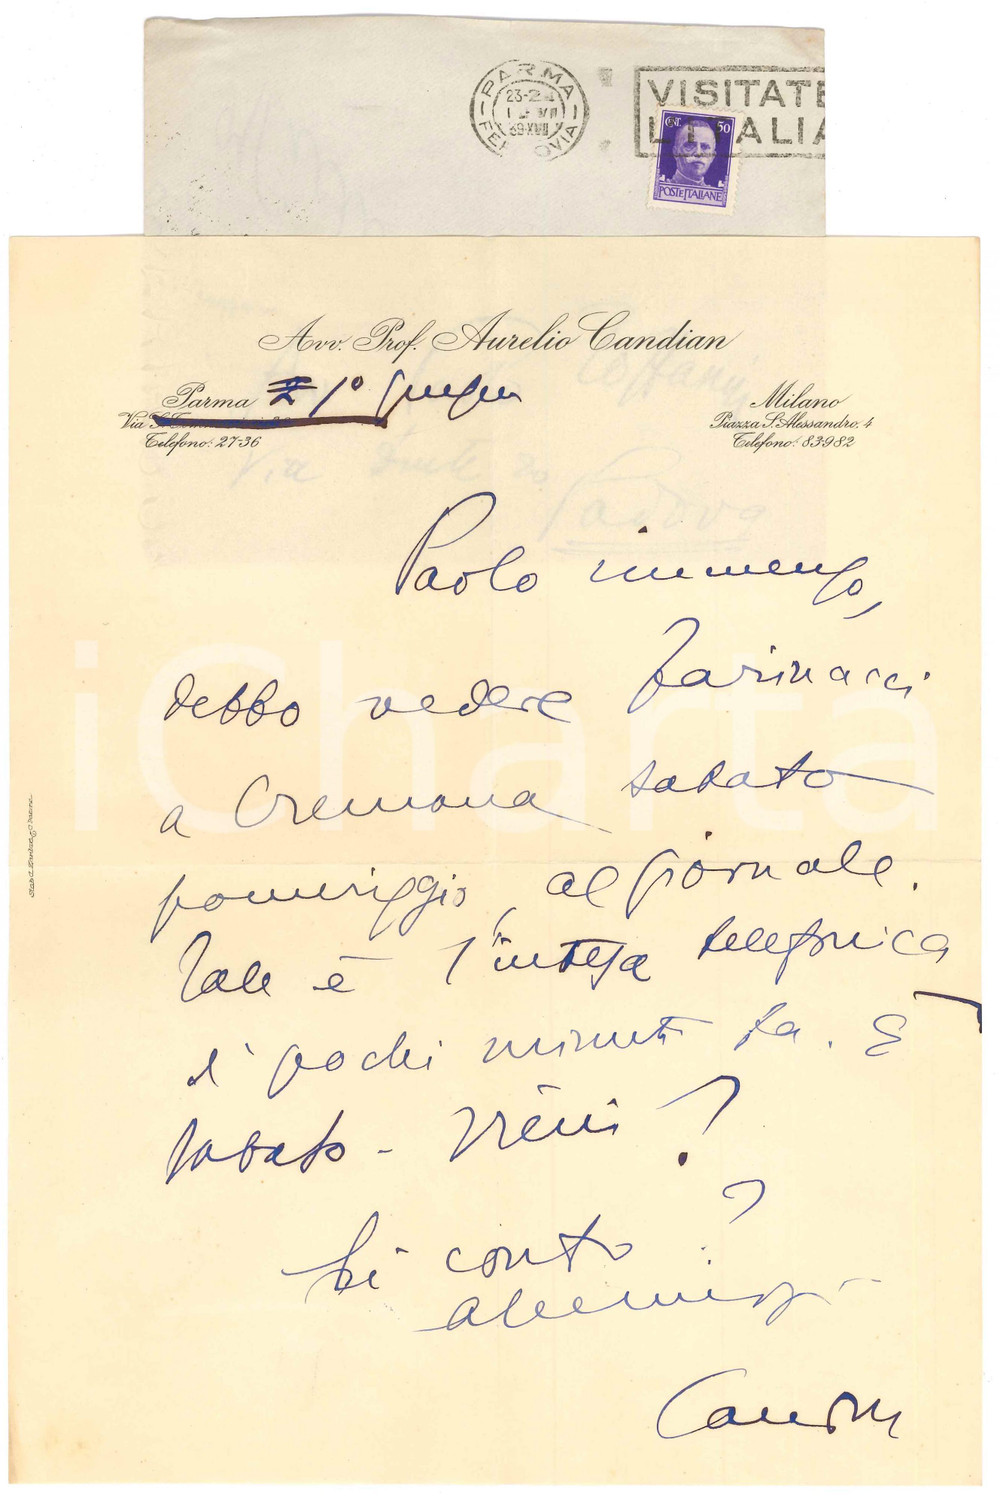 PARMA
23-24
39-XVII
FERROVIA
VISITATE
L'ITALIA
CENT. 50
POSTE ITALIANE
Avv. Prof. Aurelio Candian
Parma 1° giugno
Milano
Via S.
Piazza S. Alessandro, 4
Telefono: 27-36
Telefono: 83982
Via Dante 20
Padova
Paolo immenso,
debbo vedere Farinacci
a Cremona sabato
pomeriggio, al giornale.
Tale è l'intesa telefonica
di pochi minuti fa. È
sabato - Vieni?
Ci conto?
Candian
iCharta